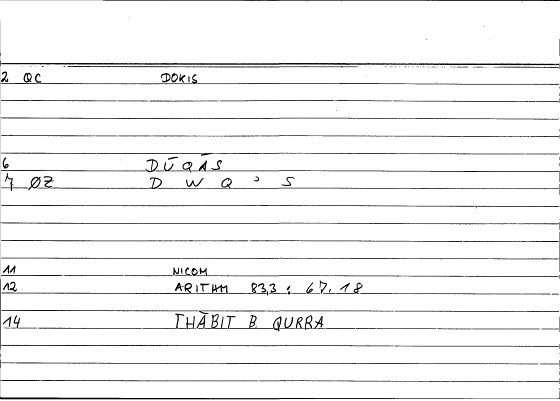 2 QC DOKIS
6 DŪQĀS
7 ØZ D W Q ' S
11 NICOM
12 ARITHM 83,3 : 67.18
14 THĀBIT B. QURRA